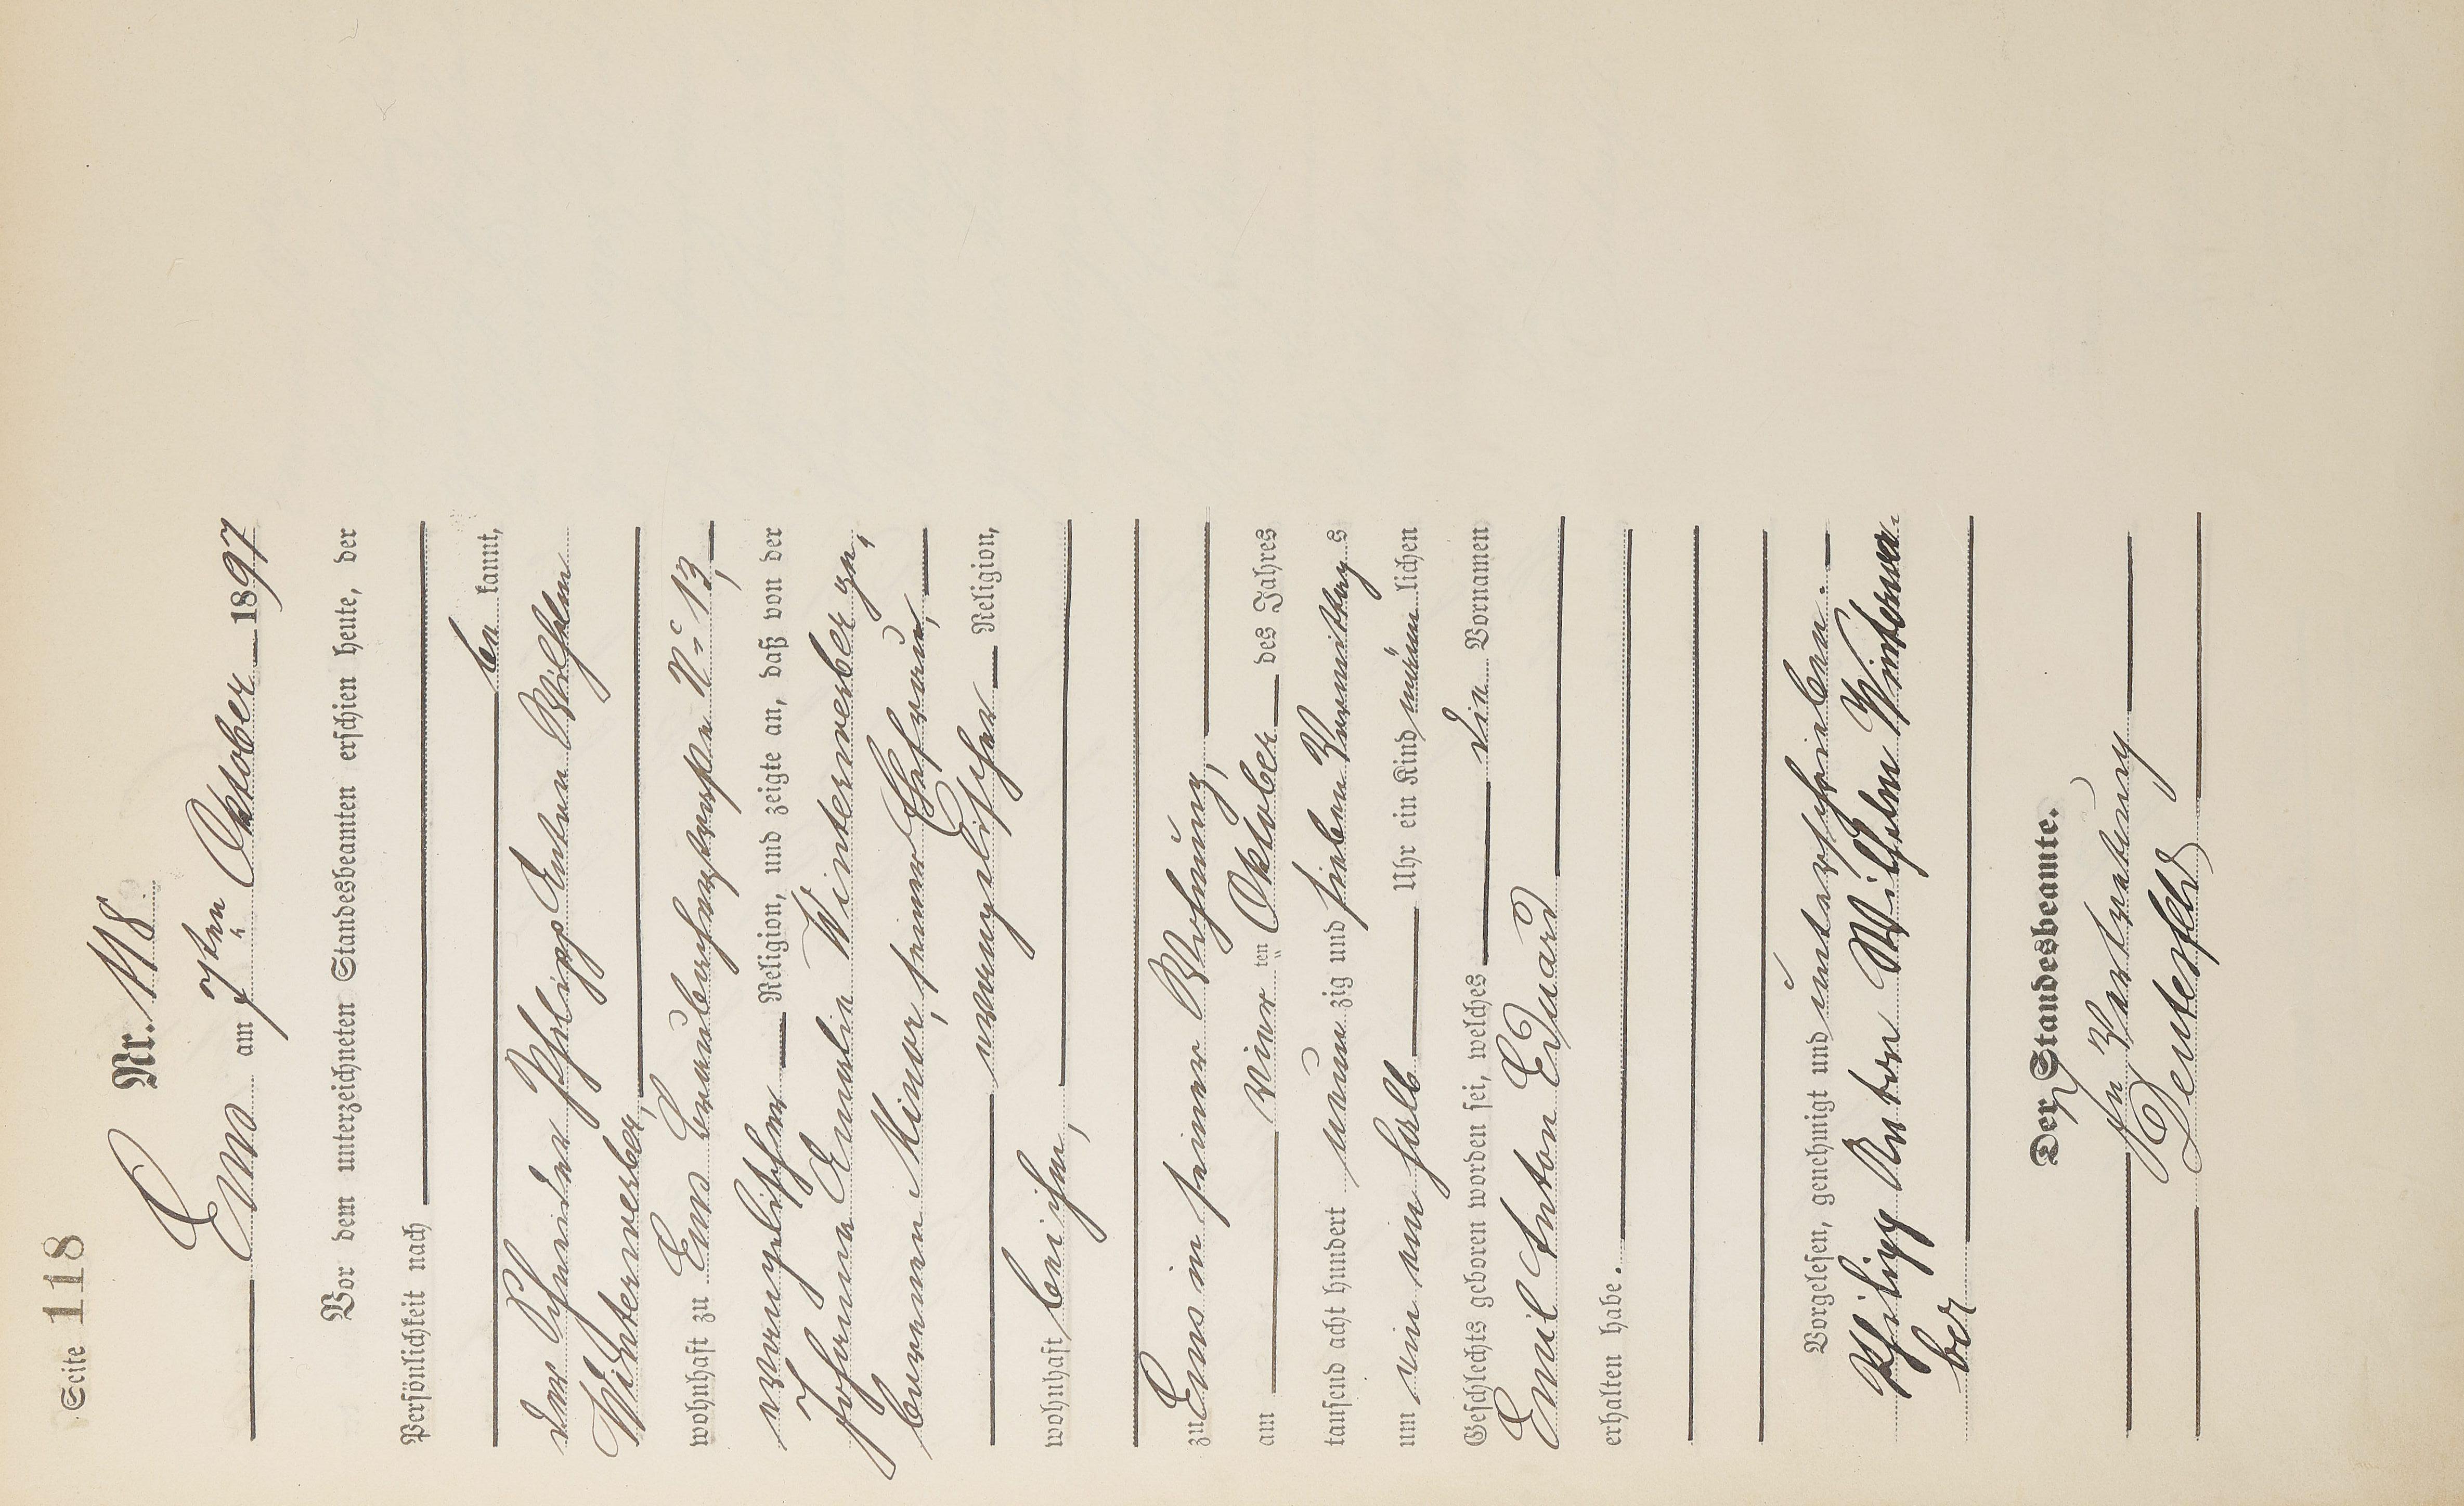 Seite 118
Nr. 118.
Ems am 7ten Oktober 1897
Vor dem unterzeichneten Standesbeamten erschien heute, der
Persönlichkeit nach
be kannt,
der Schneider Philipp Anton Wilhelm
Winterwerber,
wohnhaft zu Ems Braubacherstraße No 13,
evangelischer Religion, und zeigte an, daß von der
Johanna Emilie Winterwerber ge¬
borenen Minor, seiner Ehefrau,
evangelischer Religion,
wohnhaft bei ihm,
zu Ems in seiner Wohnung,
am vierten Oktober des Jahres
tausend acht hundert neun zig und sieben Vormittags
um ein ein halb Uhr ein Kind männ lichen
Geschlechts geboren worden sei, welches die Vornamen
Emil Anton Eduard
erhalten habe.
Vorgelesen, genehmigt und unterschrieben.
Philipp Anton Wilhelm Winterwer
ber
Der Standesbeamte.
In Vertretung